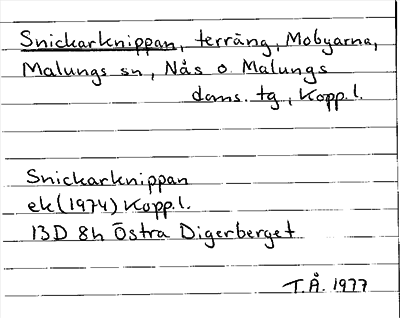 Snickarknippan, terräng, Mobyarna,
Malungs sn, Nås o. Malungs
doms. tg, Kopp.l.
Snickarknippan
ek (1974) Kopp.l.
13D 8h Östra Digerberget
T.Å. 1977